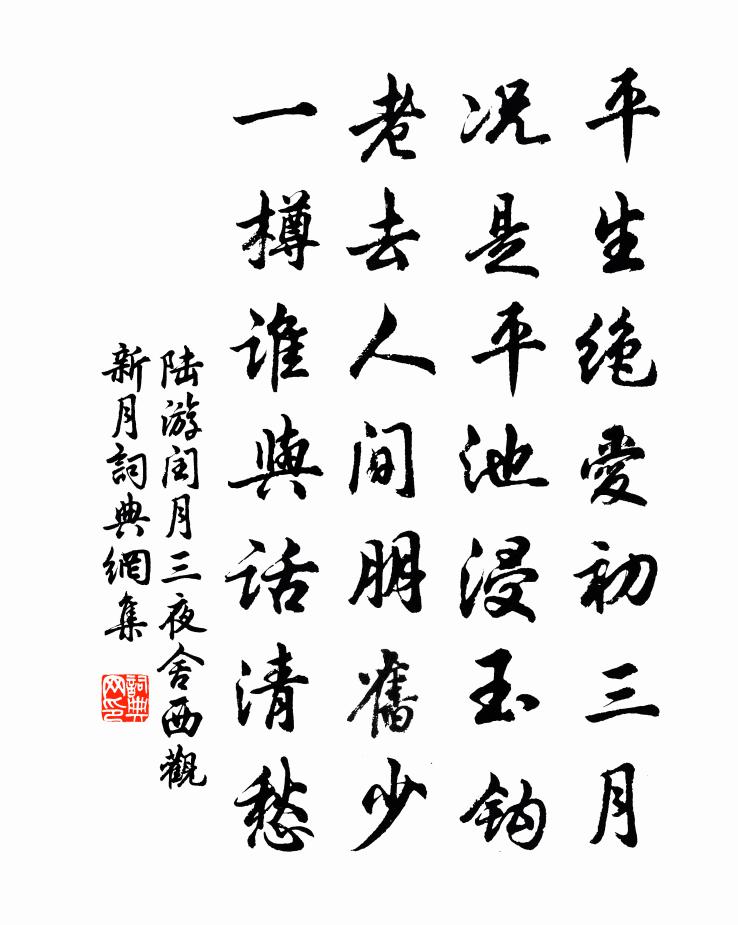 平生绝愛初三月
况是平池浸玉钩
老去人间朋舊少
一樽谁與话清愁
陆游闰月三夜舍西觀
新月詞典網集
詞典网印